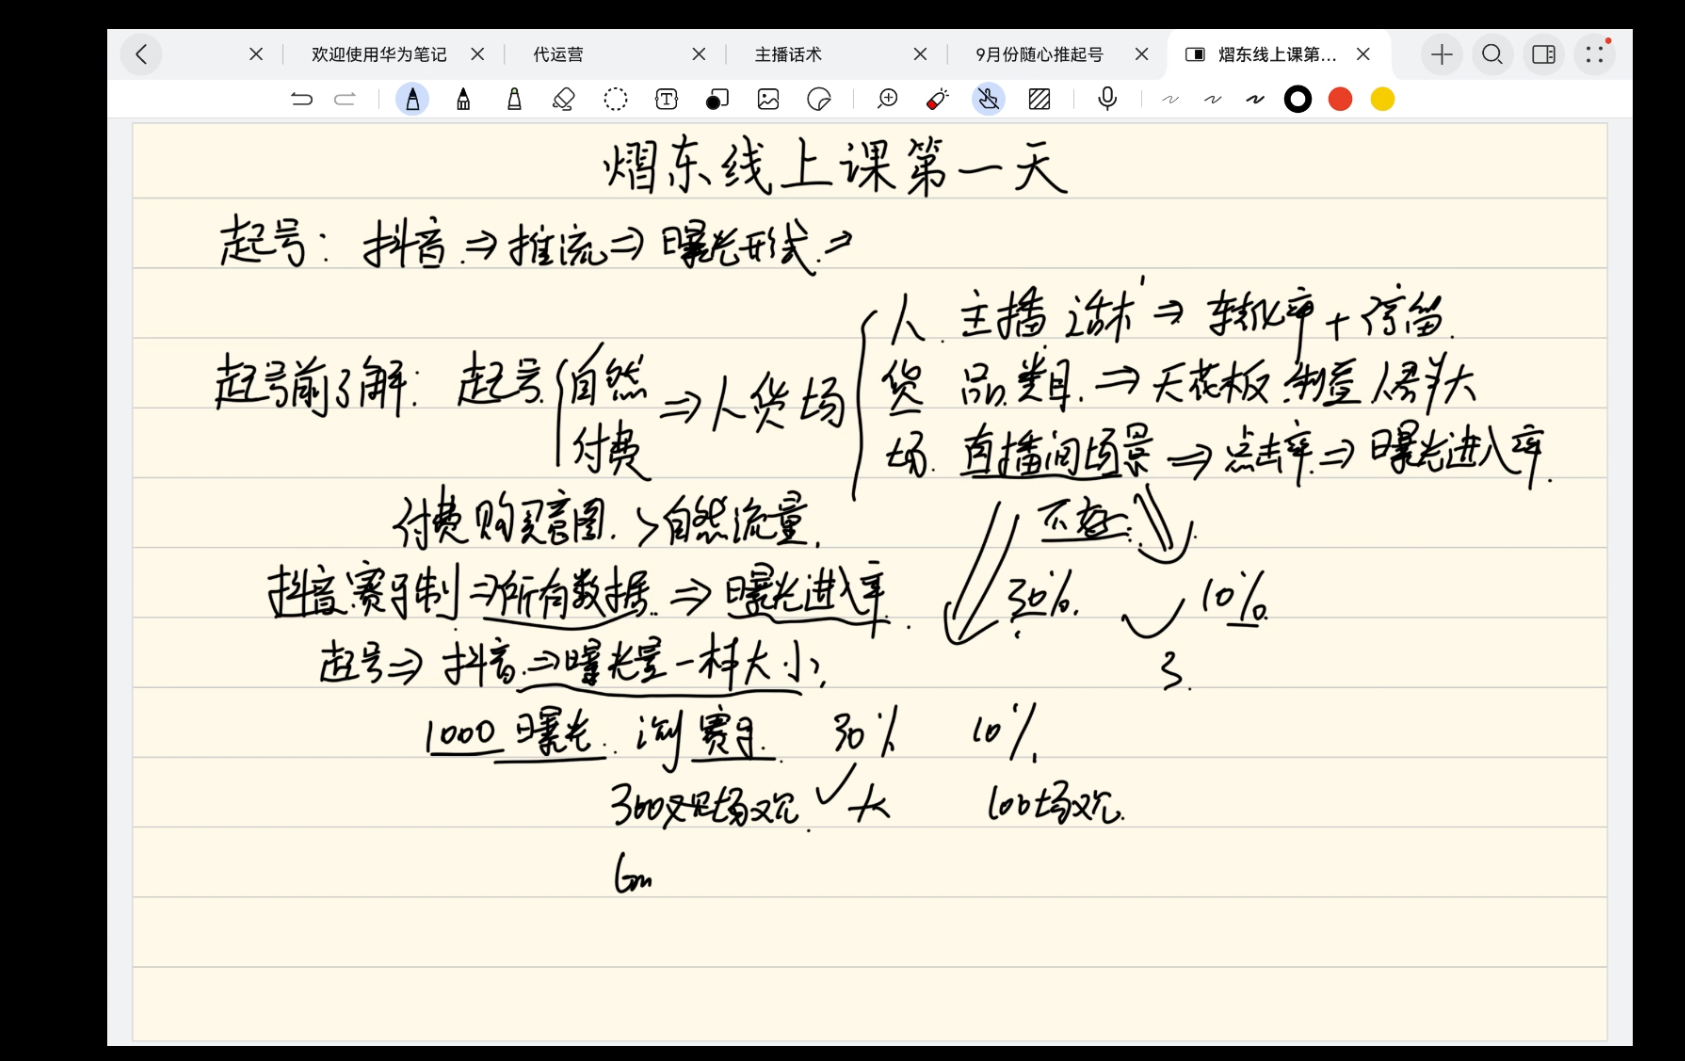 欢迎使用华为笔记 代运营 主播话术 9月份随心推起号 熠东线上课第...
熠东线上课第一天
起号: 抖音⇒推流⇒曝光形式.⇒
人. 主播 话术⇒转化率+停留.
起号前了解: 起号 自然 付费 ⇒人货场 货 品. 类目. ⇒天花板
场. 直播间场景⇒点击率.⇒曝光进入率.
付费购买意图.>自然流量.
不好.
抖音赛马制⇒所有数据.⇒曝光进入率. 30%. 10%.
起号⇒抖音.⇒曝光量一样大小, 3.
1000曝光. 赛马. 30% 10%.
300 场观. 大 100场观.